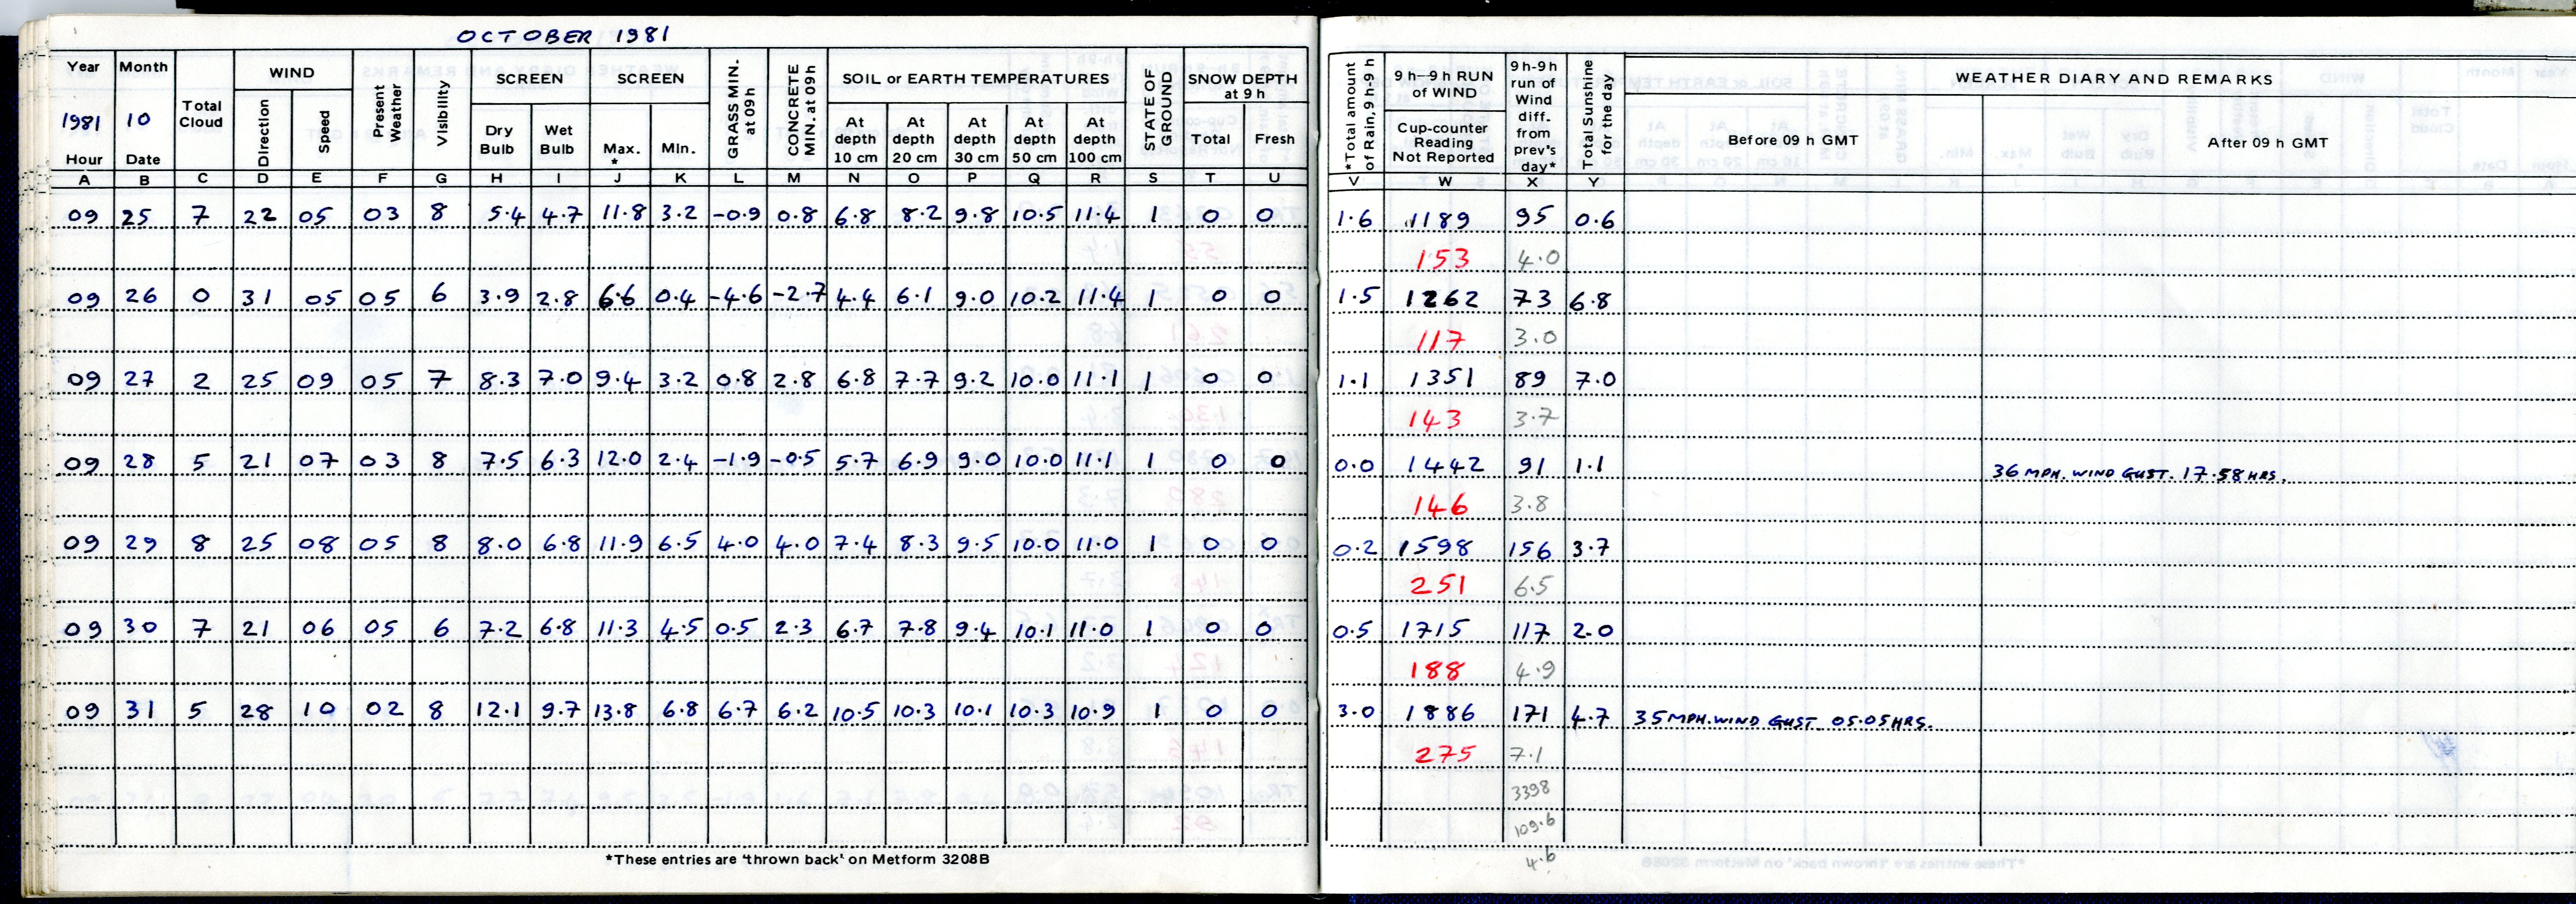 OCTOBER 1981
Year Month Total Cloud WIND Present Weather Visibility SCREEN SCREEN GRASS MIN. at 09h CONCRETE MIN. at 09h SOIL or EARTH TEMPERATURES STATE OF GROUND SNOW DEPTH at 9 h *Total amount of Rain, 9h-9h 9h-9h RUN of WIND 9h-9h run of Wind diff. from prev's day* Total Sunshine for the day WEATHER DIARY AND REMARKS
1981 10 Direction Speed Dry Bulb Wet Bulb Max. * Min. At depth 10 cm At depth 20 cm At depth 30 cm At depth 50 cm At depth 100 cm Total Fresh Cup-counter Reading Not Reported Before 09 h GMT After 09 h GMT
Hour Date
A B C D E F G H I J K L M N O P Q R S T U V W X Y
09 25 7 22 05 03 8 5.4 4.7 11.8 3.2 -0.9 0.8 6.8 8.2 9.8 10.5 11.4 1 0 0 1.6 1189 95 0.6
153 4.0
09 26 0 31 05 05 6 3.9 2.8 6.6 0.4 -4.6 -2.7 4.4 6.1 9.0 10.2 11.4 1 0 0 1.5 1262 73 6.8
117 3.0
09 27 2 25 09 05 7 8.3 7.0 9.4 3.2 0.8 2.8 6.8 7.7 9.2 10.0 11.1 1 0 0 1.1 1351 89 7.0
143 3.7
09 28 5 21 07 03 8 7.5 6.3 12.0 2.4 -1.9 -0.5 5.7 6.9 9.0 10.0 11.1 1 0 0 0.0 1442 91 1.1 36 MPH. WIND GUST. 17.58 HRS.
146 3.8
09 29 8 25 08 05 8 8.0 6.8 11.9 6.5 4.0 4.0 7.4 8.3 9.5 10.0 11.0 1 0 0 0.2 1598 156 3.7
251 6.5
09 30 7 21 06 05 6 7.2 6.8 11.3 4.5 0.5 2.3 6.7 7.8 9.4 10.1 11.0 1 0 0 0.5 1715 117 2.0
188 4.9
09 31 5 28 10 02 8 12.1 9.7 13.8 6.8 6.7 6.2 10.5 10.3 10.1 10.3 10.9 1 0 0 3.0 1886 171 4.7 35 MPH. WIND GUST 05.05 HRS.
275 7.1
3398
109.6
4.6
*These entries are 'thrown back' on Metform 3208B